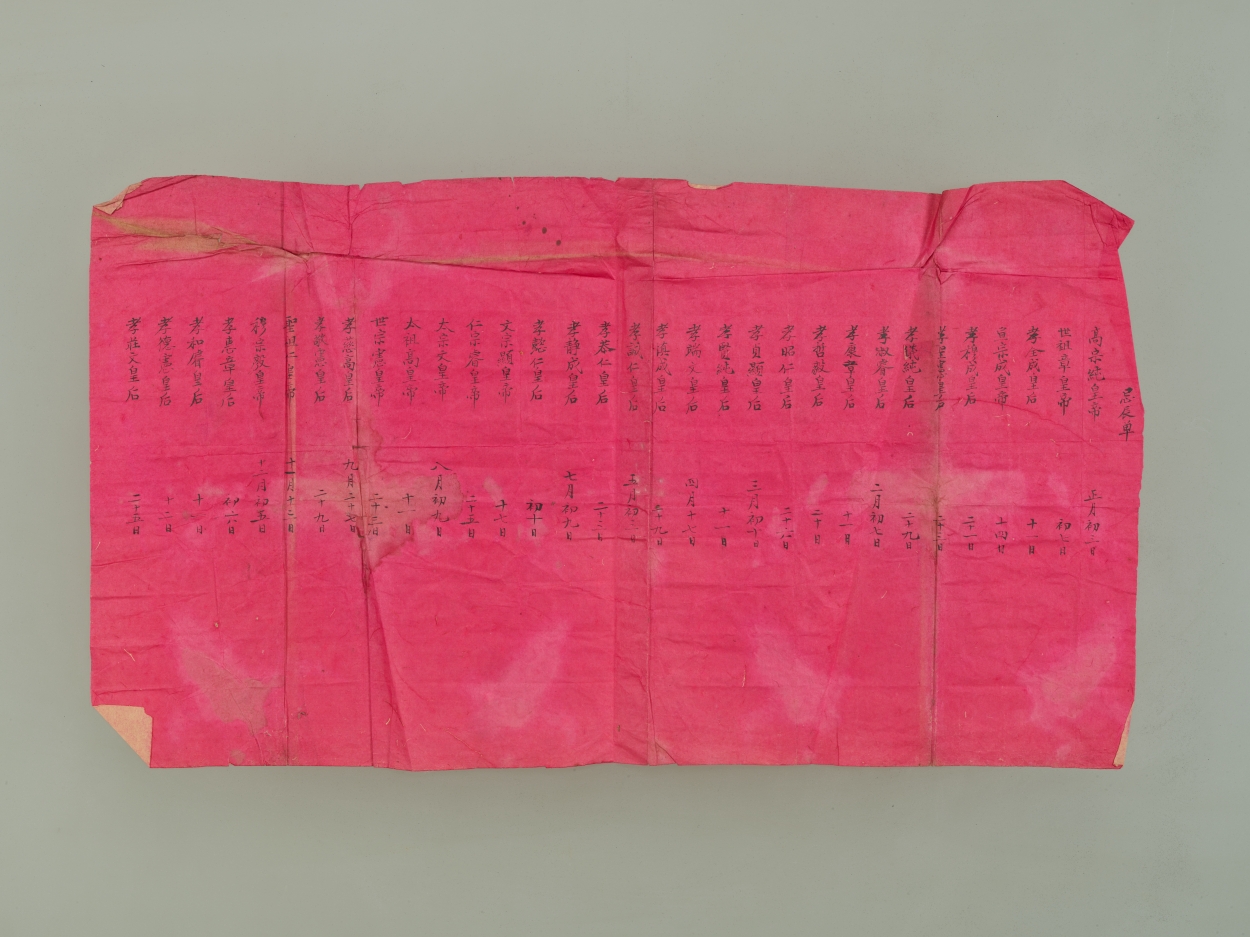 忌辰单
高宗純皇帝 正月初三日
世祖章皇帝 初七日
孝全成皇后 十一日
宣宗成皇帝 十四日
孝穆成皇后 二十一日
孝聖憲皇后 二十三日
孝儀純皇后 二十九日
孝淑睿皇后 二月初七日
孝康章皇后 十一日
孝哲毅皇后 二十日
孝昭仁皇后 二十六日
孝貞顯皇后 三月初十日
孝賢純皇后 十一日
孝端文皇后 四月十七日
孝慎成皇后 二十九日
孝誠仁皇后 五月初三日
孝恭仁皇后 二十三日
孝静成皇后 七月初九日
孝懿仁皇后 初十日
文宗顯皇帝 十七日
仁宗睿皇帝 二十五日
太宗文皇帝 八月初九日
太祖高皇帝 十一日
世宗憲皇帝 二十三日
孝慈高皇后 九月二十七日
孝敬憲皇后 二十九日
聖祖仁皇帝 十一月十三日
穆宗毅皇帝 十二月初五日
孝惠章皇后 初六日
孝和睿皇后 十一日
孝德顯皇后 十二日
孝莊文皇后 二十五日